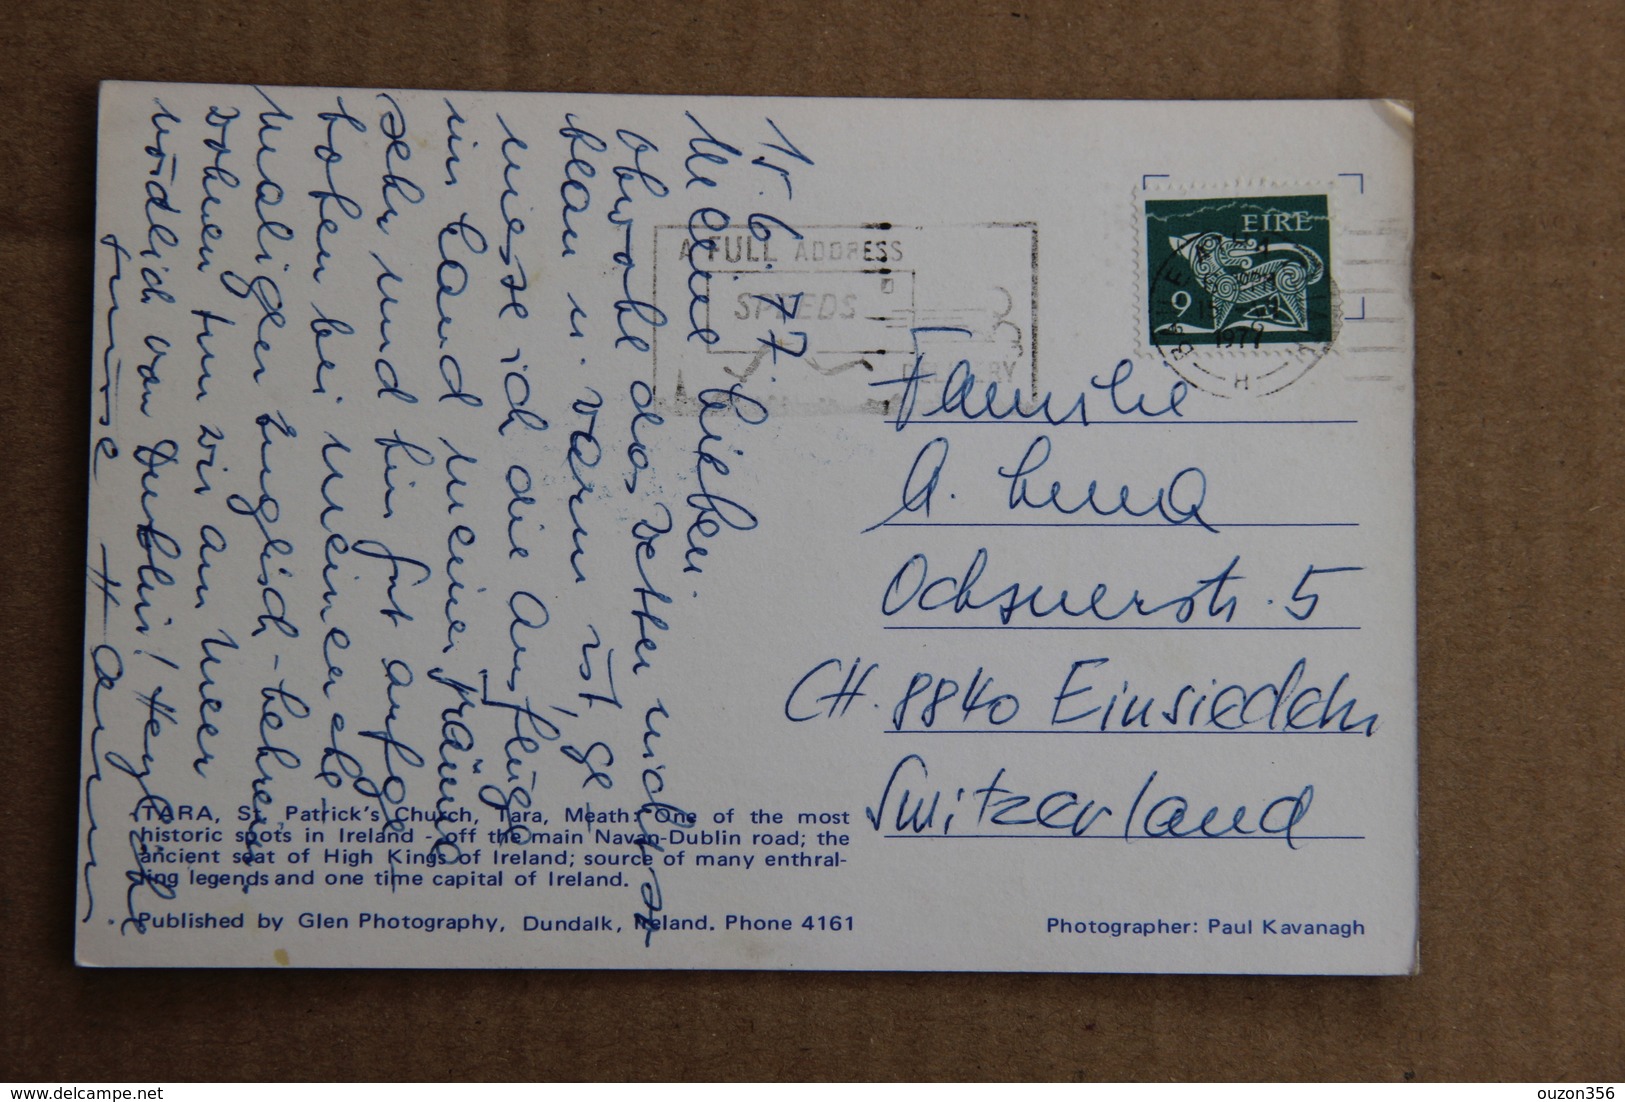 15.6.77.
Meine Lieben
Obwohl das Wetter nicht so
blau u. warm ist, ge-
niesse ich die Ausflüge
ins Land meiner Träume
sehr und bin gut aufge-
hoben bei meiner ehe-
maligen Englisch-Lehrerin.
Wohnen tun wir am Meer
nördlich von Dublin! Herzliche
Grüsse Hanni.
A FULL ADDRESS
SPEEDS
DELIVERY
EIRE
9
1977
H
Familie
A.
Ochsnerstr. 5
CH. 8840 Einsiedeln
Switzerland
TARA, St. Patrick's Church, Tara, Meath: One of the most
historic spots in Ireland - off the main Navan-Dublin road; the
ancient seat of High Kings of Ireland; source of many enthral-
ling legends and one time capital of Ireland.
Published by Glen Photography, Dundalk, Ireland. Phone 4161
Photographer: Paul Kavanagh
www.delcampe.net
ouzon356